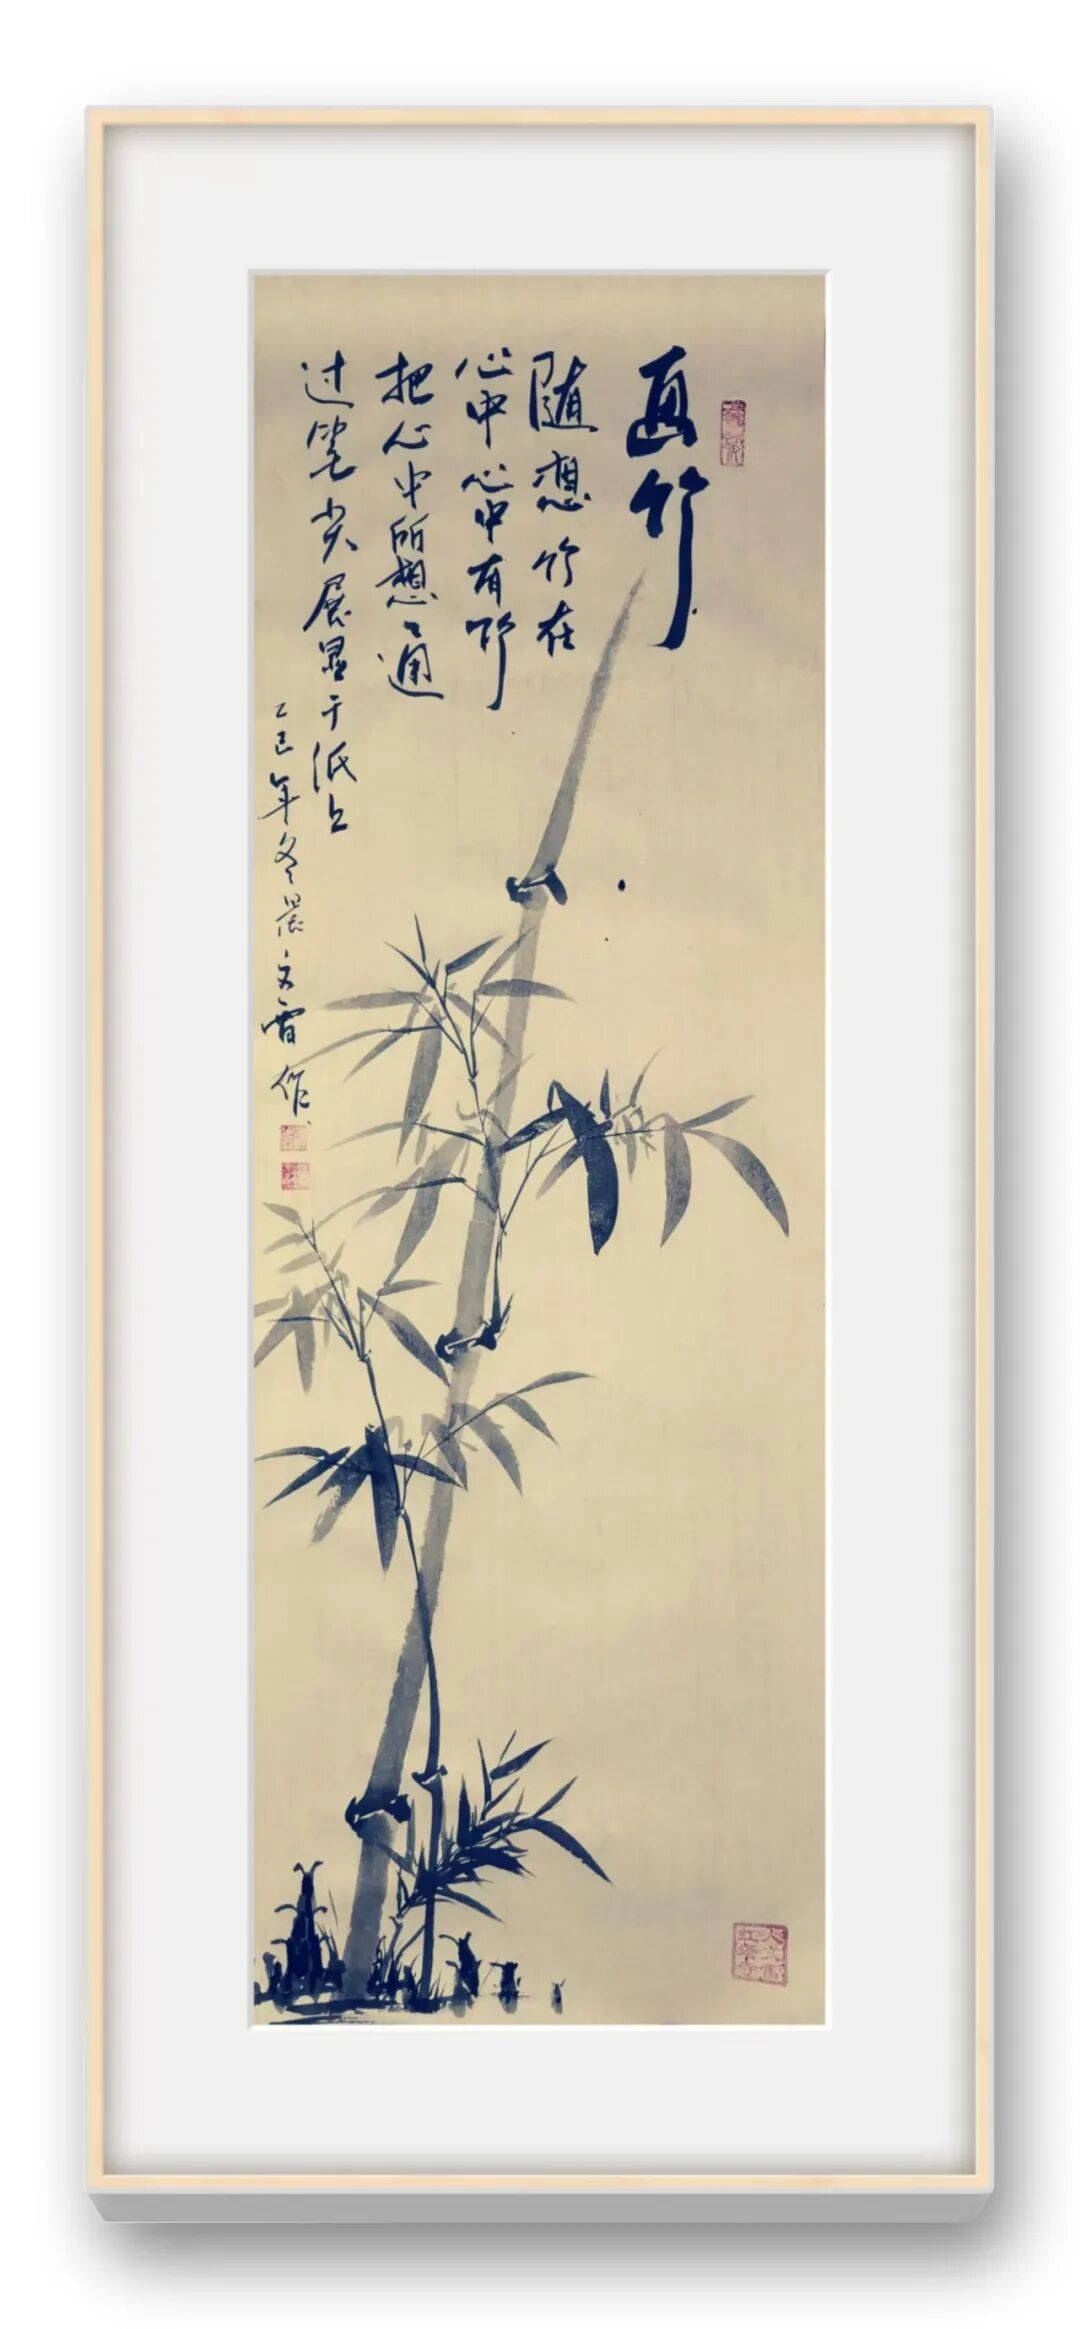 画竹
随想竹在
心中心中有竹
把心中所想通
过笔尖展显于纸上
乙巳年冬晨文雪作